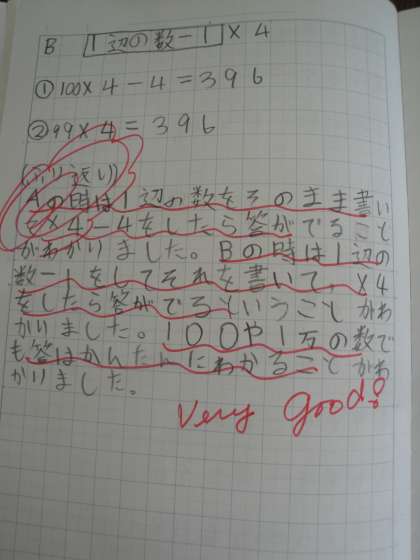 B 1辺の数-1×4
①100×4-4=396
②99×4=396
(ふり返り)
Aの時は1辺の数をそのまま書い
て×4-4をしたら答がでること
がわかりました。Bの時は1辺の
数-1をしてそれを書いて、×4
をしたら答がでるということがわ
かりました。100や1万の数で
も答はかんたんにわかることがわ
かりました。
Very good!